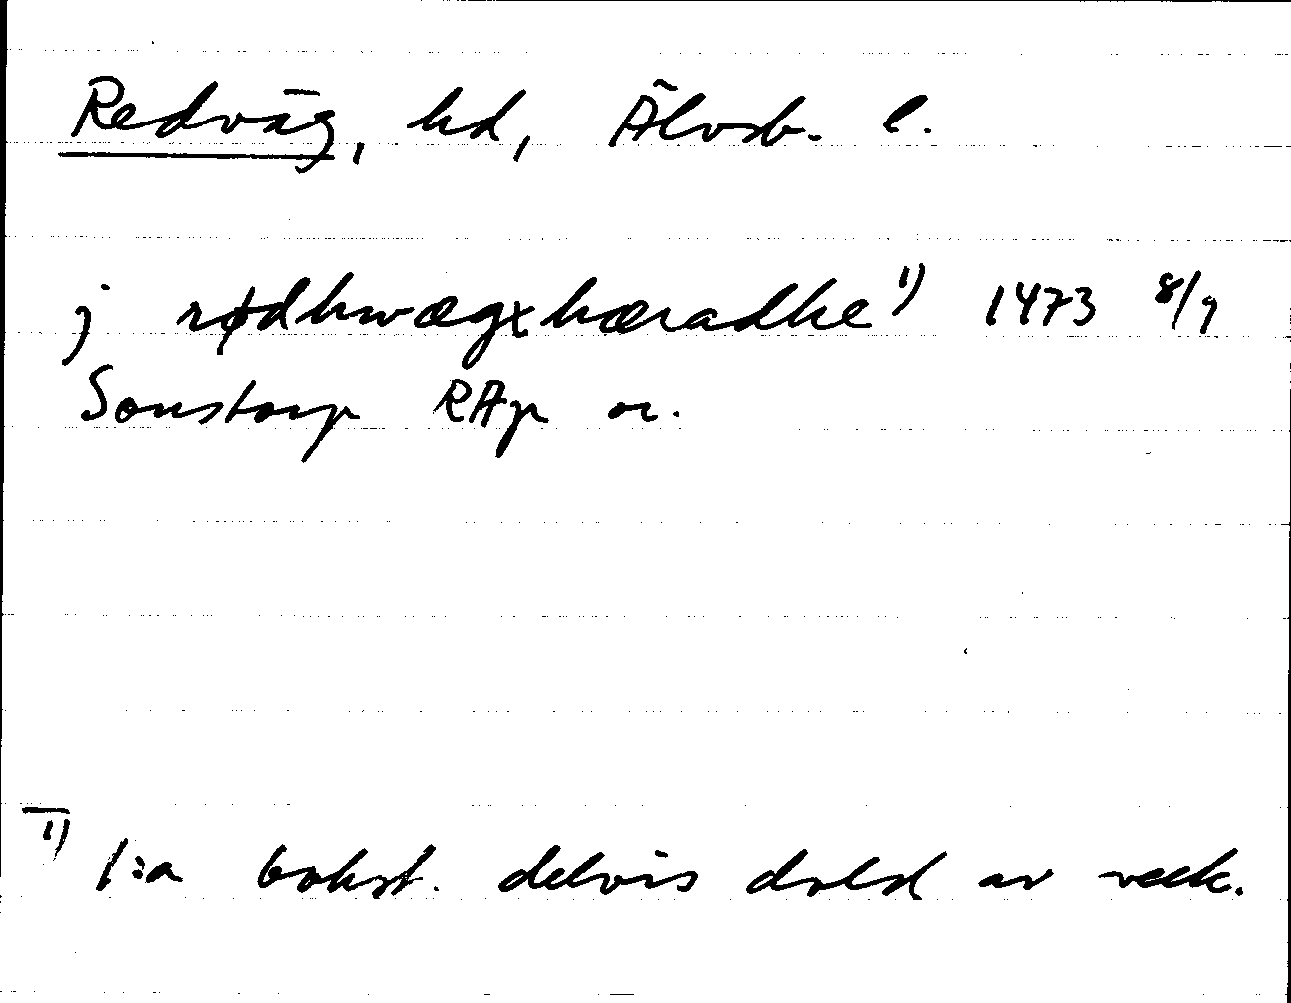 Redväg, hd, Älvsb. l.
j rødhwægxhæradhe 1) 1473 8/9
Sonstorp RAp or.
1) 1:a bokst. delvis dold av veck.